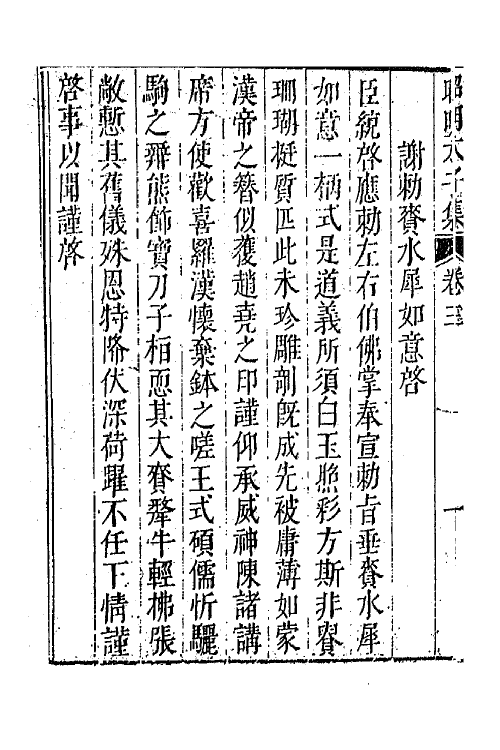 昭明太子集 卷三
謝勅賚水犀如意啓
臣統啓應勅左右伯佛掌奉宣勅旨垂賚水犀
如意一柄式是道義所須白玉照彩方斯非賚
珊瑚挺質匹此未珍雕剞旣成先被庸薄如蒙
漢帝之簪似獲趙堯之印謹仰承威神陳諸講
席方使歡喜羅漢懷棄鉢之嗟王式碩儒忻驪
駒之辭熊飾寶刀子桓恧其大賚犛牛輕拂張
敞慙其舊儀殊恩特降伏深荷躍不任下情謹
啓事以聞謹啓